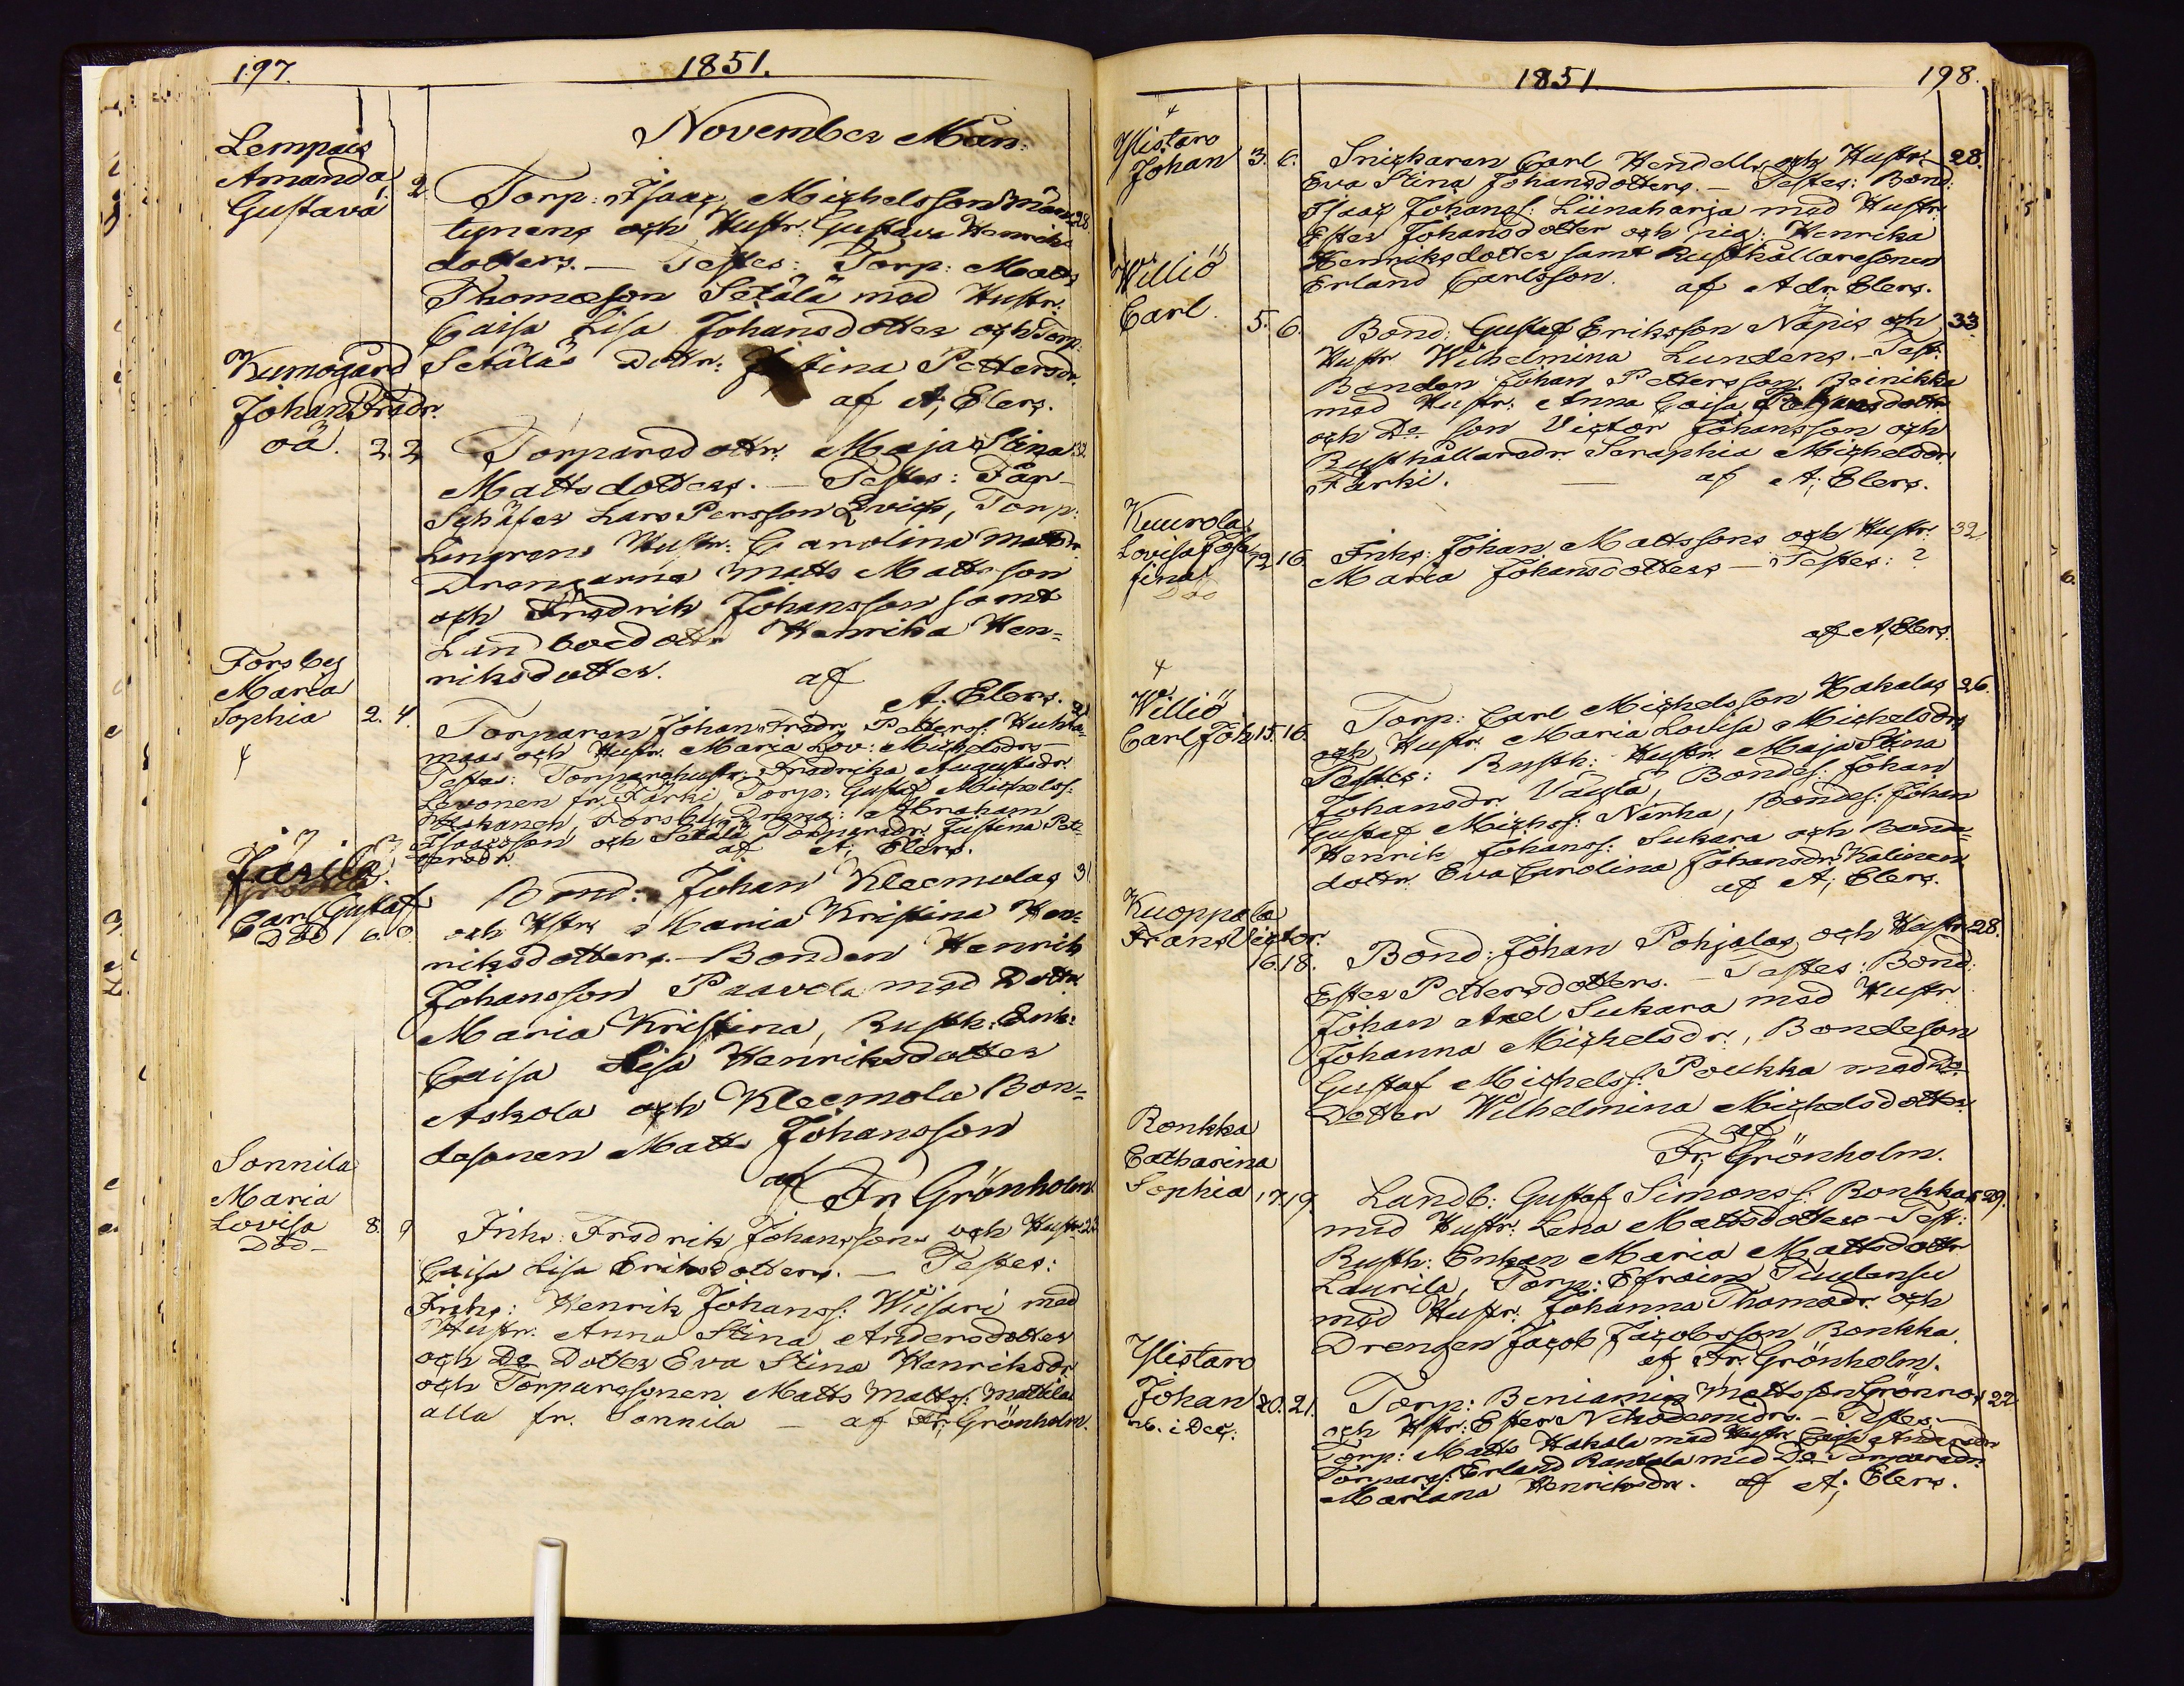 197.
1851.
November Mån:
Lempais
Amanda
Gustava
2.
Torp: Isaac Michelsson Män-
28.
tynens och Hustr: Gustava Henriks
dotters. — Testes: Torp: Matts
Thomasson Setälä med Hustr.
Caisa Lisa Johansdotter och Torp:
Setäläs Dottr: Justina Pettersdr.
af A; Elers.
Kumogård
Johan Fredr.
oä. 2. 2.
Torparedottr: Maja Stina
32
Mattsdotters. — Testes: Får-
Schäfer Lars Persson Qvick, Torp:
Lingrens Hustr: Carolina Mattsdr
Drengarna Matts Mattsson
och Fredrik Johansson samt
Landboedottr Henrika Hen=
riksdotter. af
A. Elers.
Forsby
Maria
Sophia 2. 4.
Torparen Johan Fredr. Petterss: Huhta-
21
maas och Hustr. Maria Lov: Michelsdrs —
Testes: Torparehustr. Fredrika Augustsdr.
Levonen fr. Färki, Torp: Gustaf Michelss:
Forsby, Dreng: Abraham
Isaacsson och Setälä Torparedr. Justina Pet-
tersdr. af A; Elers.
Järilä
Carl Gustaf
Död 6. 8.
Bond: Johan Kleemolas
31
och Hstr. Maria Kristina Hen=
riksdotters. — Bonden Henrik
Johansson Paavola med Dottr
Maria Kristina, Rusth: Enk:
Caisa Lisa Henriksdotter
Askola och Kleemola Bon=
desonen Matts Johansson
af Fr. Grönholm.
Sonnila
Maria
Lovisa 8. 9
Död —
Inhs: Fredrik Johanssons och Hustr.
23
Caisa Lisa Eriksdotters. — Testes:
Inhs: Henrik Johanss: Wiisari med
Hustr. Anna Stina Andersdotter
och Do Dotter Eva Stina Henriksdr
och Torparesonen Matts Mattss: Mattila
alla fr. Sonnila — af Fr. Grönholm.
1851.
198.
Ylistaro
Johan 3. 6.
Snickaren Carl Hendells och Hustr.
28.
Eva Stina Johansdotters. — Testes: Bond:
Isaac Johanss: Liinaharja med Hustr:
Ester Johansdotter och pig: Henrika
Henriksdotter samt Rusthållaresonen
Erland Carlsson. af Adr. Elers.
Williö
Carl. 5. 6.
Bond: Gustaf Eriksson Näpis och
33.
Hustr Wilhelmina Lundens. — Test:
Bonden Johan Pettersson Beinikka
med Hustr: Anna Caisa
och Do son Victor Johansson och
Rusthållaredr. Seraphia Michelsdr.
Färki. — af A; Elers.
Kuurola
Lovisa Jose-
fina 12. 16.
Död
Inhs: Johan Mattssons och Hustr:
32.
Maria Johansdotters — Testes: ?
af A; Elers.
Williö
Carl Joh. 15. 16.
Torp: Carl Michelsson Hakalas
26.
och Hustr. Maria Lovisa Michelsdrs
Testes: Rusth: Hustr. Maja Stina
Johansdr. Väylä, Bondes: Johan
Gustaf Michss: Nirha, Bondes: Johan
Henrik Johanss: Sukara och Bonde=
dottr. Eva Carolina Johansdr. Kalinen
af A; Elers.
Kuoppala
Frans Victor.
16. 18.
Bond: Johan Pohjalas och Hustr.
28.
Ester Pettersdotters. — Testes: Bond:
Johan Axel Sukara med Hustr
Johanna Michelsdr., Bondeson
Gustaf Michelss: Poukka med Do
Dotter Wilhelmina Michelsdotter.
af
Fr. Grönholm.
Ronkka
Catharina
Sophia 17. 19.
Landb: Gustaf Simonss: Ronkkas
29.
med Hustr. Lena Mattsdotter — Test:
Rusth: Enkan Maria Mattsdottr
Laurila, Torp: Efraim Tuulensu
med Hustr. Johanna Thomasdr. och
Drengen Jacob Jacobsson Ronkka.
af Fr. Grönholm.
Ylistaro
Johan 20. 21.
nb. i Dec:
Torp: Beniamin Mattsson Grönroos
22
och Hstr: Ester Nikodemidrs. — Testes: —
Torp: Matts Hakala med Hustr. Caisa Andersdr
Torpares: Erland Rantala med Do Torparedr.
Mariana Henriksdr. af A; Elers.